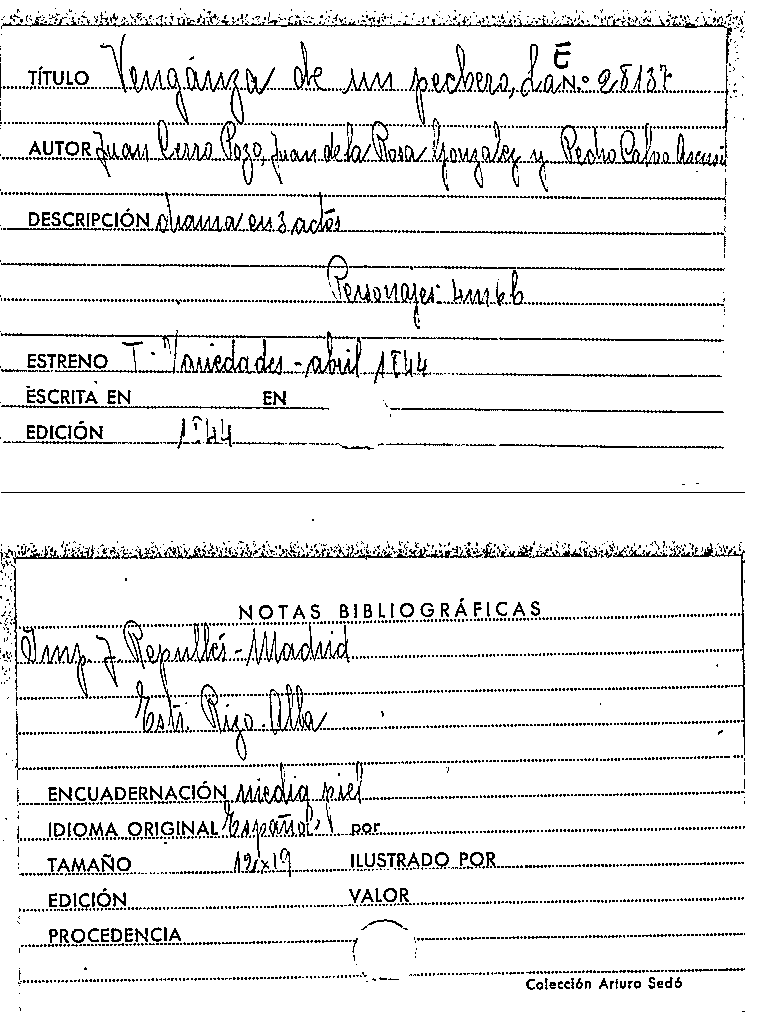 TÍTULO Vengánza de un pechero, La E N.º 28137
AUTOR Juan Cerro Pozo, Juan de la Rosa González y Pedro Calvo Asensio
DESCRIPCIÓN drama en 3 actos
Personajes: 4m 6h
ESTRENO T. Variedades - abril 1844
ESCRITA EN EN
EDICIÓN 1844
NOTAS BIBLIOGRÁFICAS
Imp. J. Repullés - Madrid
Estr. Rizo. Alba
ENCUADERNACIÓN media piel
IDIOMA ORIGINAL Español por
TAMAÑO 12x19 ILUSTRADO POR
EDICIÓN VALOR
PROCEDENCIA
Colección Arturo Sedó